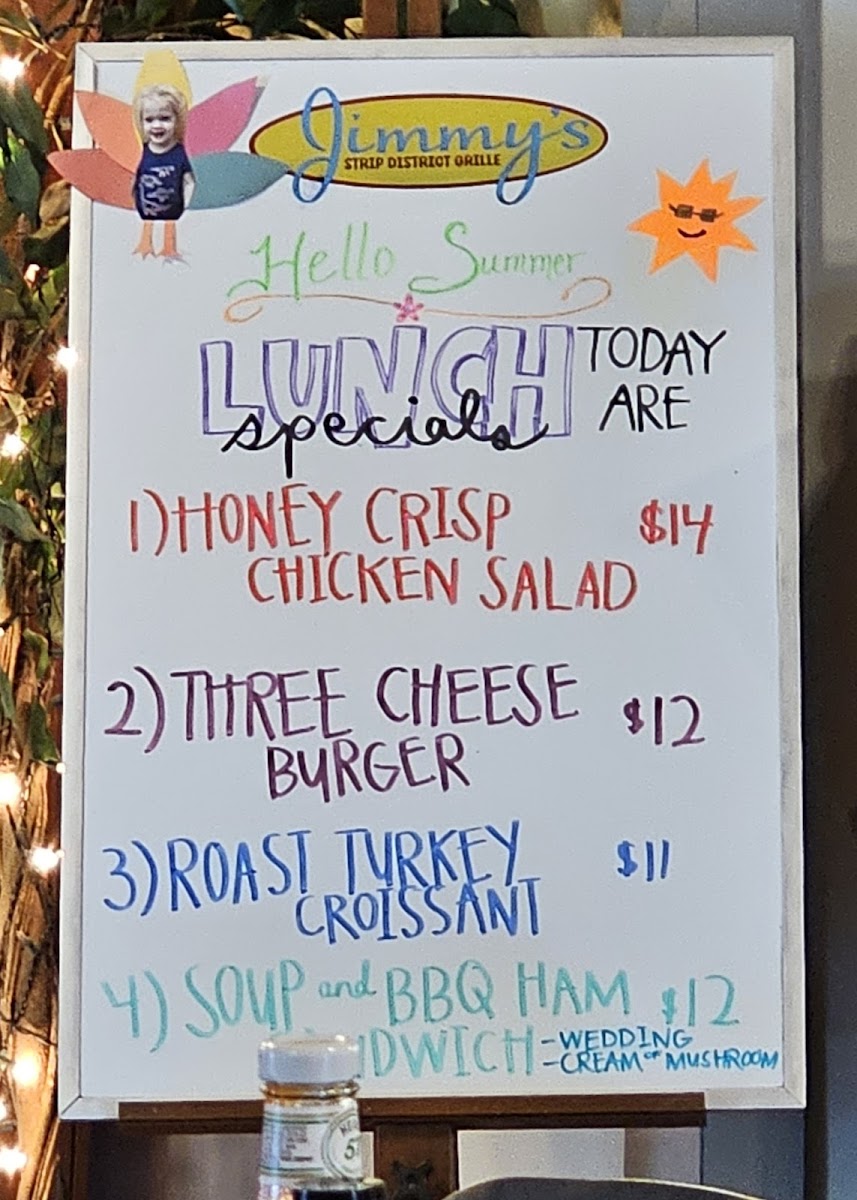 Jimmy's
STRIP DISTRICT GRILLE
Hello Summer
LUNCH TODAY
specials ARE
1) HONEY CRISP $14
CHICKEN SALAD
2) THREE CHEESE $12
BURGER
3) ROAST TURKEY $11
CROISSANT
4) SOUP and BBQ HAM $12
DWICH - WEDDING
- CREAM OF MUSHROOM
57